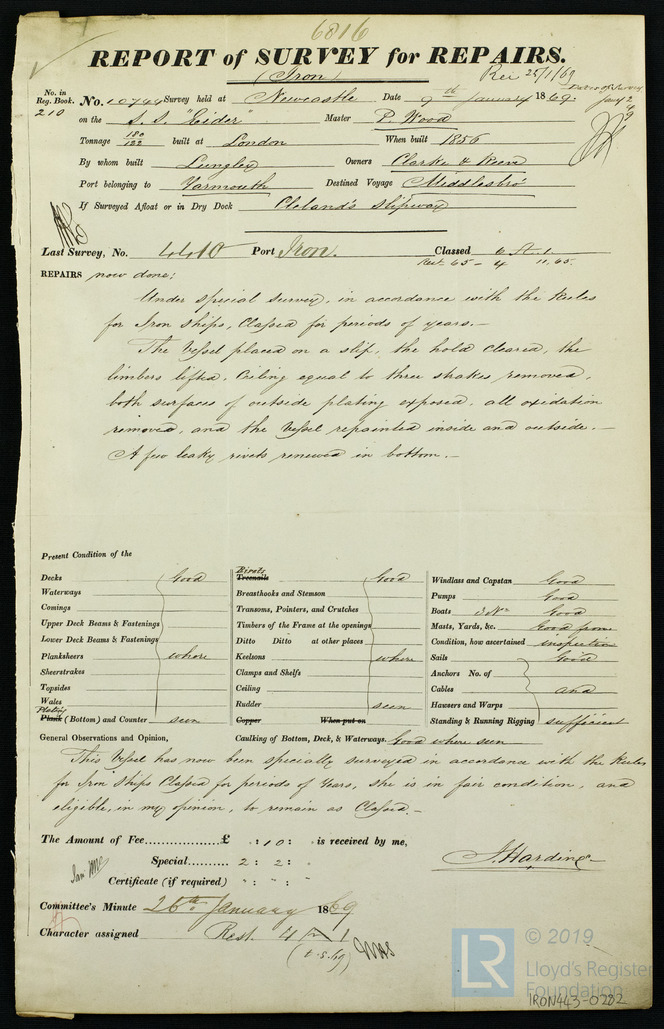 6816
REPORT of SURVEY for REPAIRS.
(Iron)
Rec 25/1/69
No. in Reg. Book. 210
No. 10746 Survey held at Newcastle Date 9th January 1869.
on the S.S. "Eider" Master P. Wood
Tonnage 180/122 built at London When built 1856
By whom built Lungley Owners Clarke & Keen
Port belonging to Yarmouth Destined Voyage Middlesbro'
If Surveyed Afloat or in Dry Dock Cleland's Slipway
Last Survey, No. 4410 Port Iron. Classed 6 A. 1
Rest. 65 - 4 11.65.
REPAIRS now done;
Under special survey, in accordance with the Rules
for Iron Ships, Classed for periods of years.—
The Vessel placed on a slip, the hold cleared, the
limbers lifted, Ceiling equal to three strakes removed,
both surfaces of outside plating exposed, all oxidation
removed, and the Vessel repainted inside and outside.—
A few leaky rivets renewed in bottom.—
Present Condition of the
Decks Good
Waterways
Comings
Upper Deck Beams & Fastenings
Lower Deck Beams & Fastenings
Planksheers where
Sheerstrakes
Topsides
Wales
Plating
Plank (Bottom) and Counter seen
Rivets
Treenails Good
Breasthooks and Stemson
Transoms, Pointers, and Crutches
Timbers of the Frame at the openings
Ditto Ditto at other places
Keelsons where
Clamps and Shelfs
Ceiling
Rudder seen
Copper When put on
Caulking of Bottom, Deck, & Waterways. Good where seen
Windlass and Capstan Good
Pumps Good
Boats 3 No. Good
Masts, Yards, &c. Good from
Condition, how ascertained inspection
Sails Good
Anchors No. of
Cables and
Hawsers and Warps
Standing & Running Rigging sufficient
General Observations and Opinion,
This Vessel has now been specially surveyed in accordance with the Rules
for Iron Ships Classed for periods of Years, she is in fair condition, and
eligible, in my opinion, to remain as Classed.—
The Amount of Fee............£ " : 10 : " is received by me,
Special......... 2 : 2 : "
J. Harding
Certificate (if required) " : " : "
Committee's Minute 26th January 1869
Character assigned Rest. 4 A 1
(t.s.69)
LR
© 2019
Lloyd's Register
Foundation
IRON443-0282